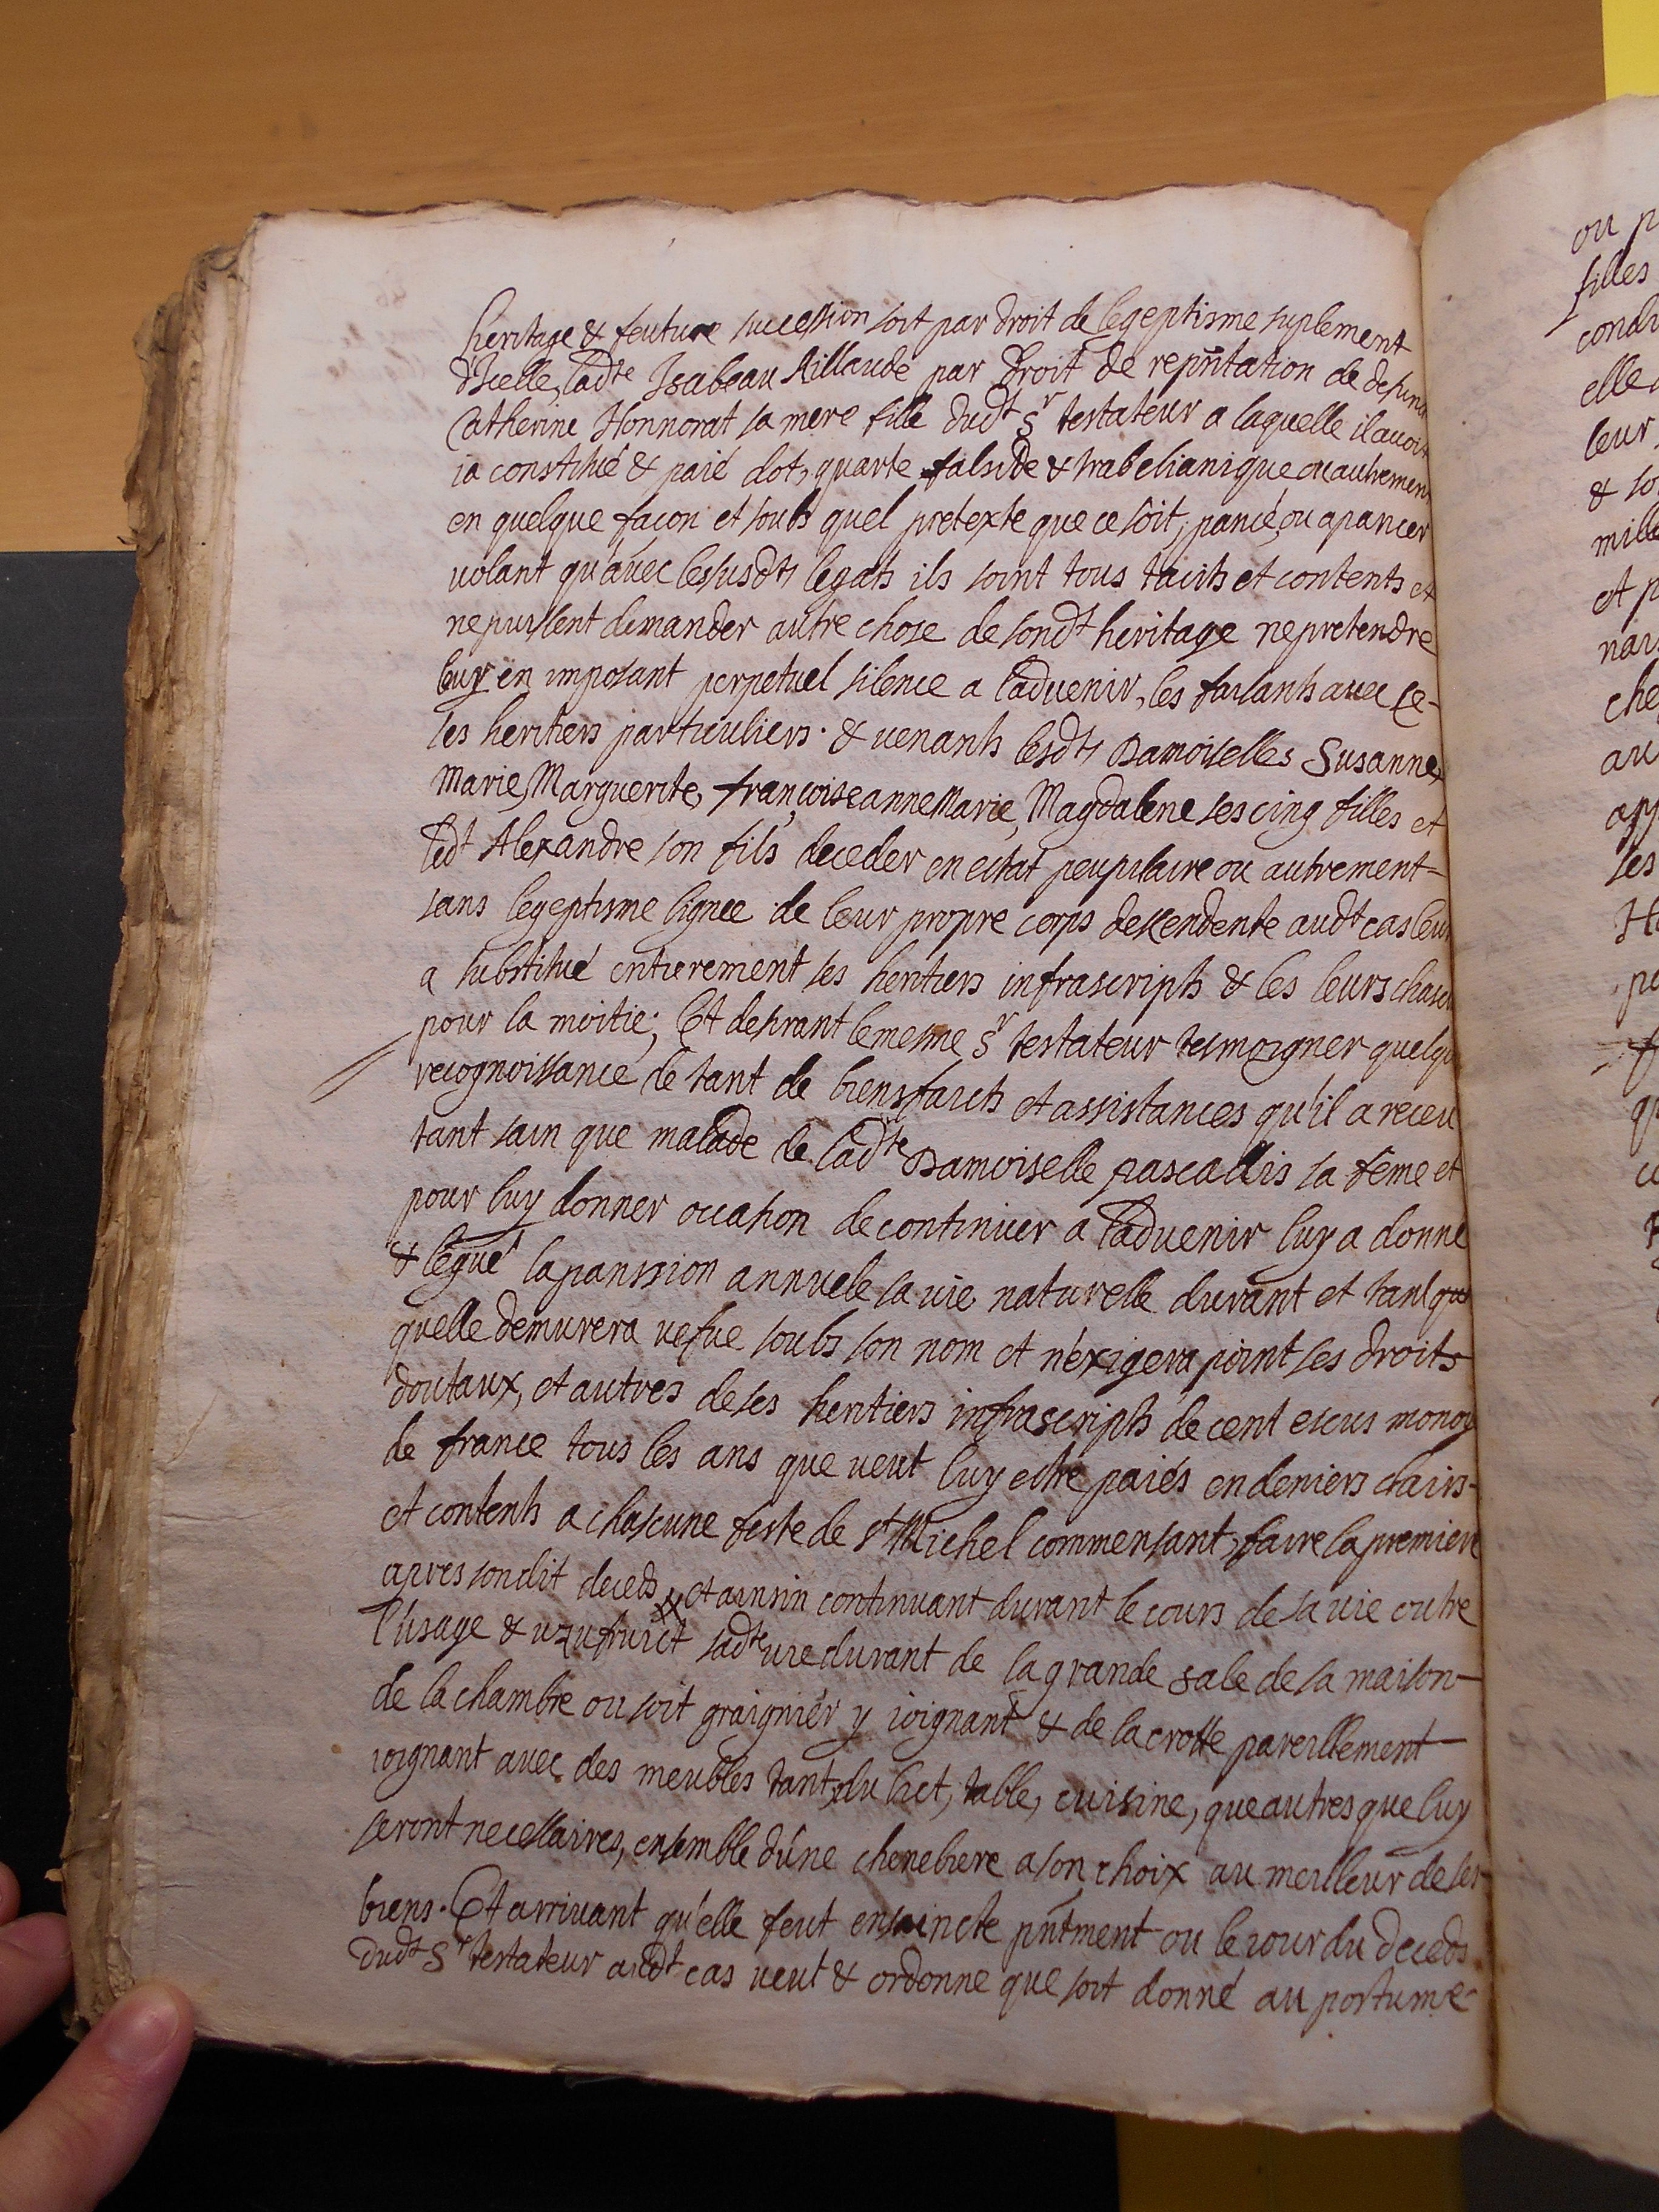 heritage & feuture succession soit par droit de legeptisme suplement
d'Icelle, ladte Isabeau Aillaude par droit de repñtation de defunc
Catherine Honnorat sa mere fille dudt Sr testateur a laquelle il avoit
ja constitué & paié dot, quarte falside & trabelianique ou autrement
en quelque façon et soubs quel pretexte que ce soit, pancé, ou a pancer
volant qu'avec les susdts legats ils soint tous tacits et contents et
ne puissent demander autre chose de sondt heritage ne pretendre
leuy en imposant perpetuel silence a l'advenir, les faisants avec ce-
ses heritiers particuliers. & venants lesdts Damoiselles Susanne,
Marie, Marguerite, françoise anne Marie, Magdalene ses cinq filles et
ledt Alexandre son fils deceder en estat peupilaire ou autrement=
sans legeptisme lignee de leur propre corps dessendente audt cas leur
a substitué entierement ses heritiers infrascripts & les leurs chascu
pour la moitié; Et desirant le mesme Sr testateur tesmoigner quelque
recognoissance de tant de biensfaicts et assistances qu'il a receu
tant sain que malade de ladte Damoiselle pascallis sa feme et
pour luy donner occasion de continuer a l'advenir luy a donné
& legué la panssion annuele sa vie naturelle durant et tant que
quelle demurera vefue soubs son nom et n'exigera point ses droits
doutaux, et autres de ses heritiers infrascripts de cent escus monoy
de france tous les ans que veut luy estre paiés en deniers clairs-
et contents a chascune feste de st Michel commensant faire la premiere
apres sondit deceds, et ainsin continuant durant le cours de sa vie outre
l'usage & uzufruict sadte vie durant de la grande sale de sa maison-
de la chambre ou soit graignier y joignant & de la crotte pareillement-
joignant avec des meubles tant du lict, table, cuisine, que autres que luy
seront necessaires, ensemble d'une chenebiere a son choix au meilleur de ses-
biens. Et arrivant qu'elle feut ensaincte pñtment ou le jour du deceds
dudt Sr testateur audt cas veut & ordonne que soit donné au postume-
ou p
filles
condi
elle
leur
& so
mille
et p
nai
che
au
app
les